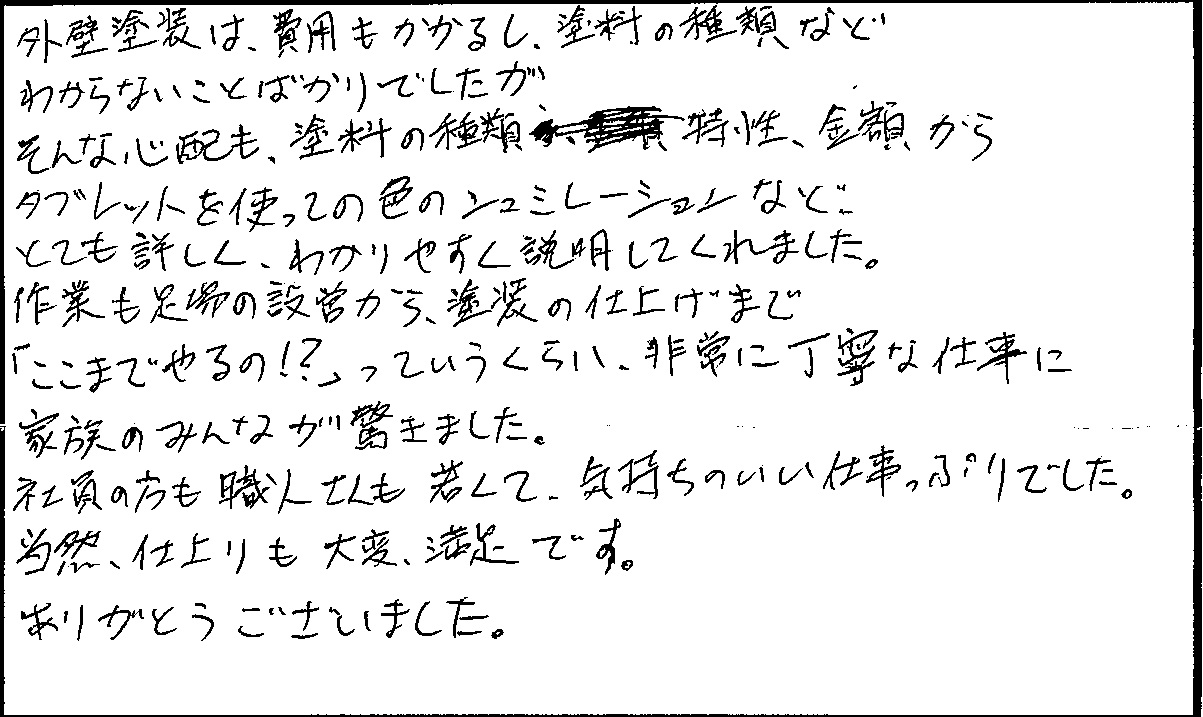 外壁塗装は、費用もかかるし、塗料の種類など
わからないことばかりでしたが
そんな心配も、塗料の種類、特性、金額から
タブレットを使っての色のシュミレーションなど、
とても詳しく、わかりやすく説明してくれました。
作業も足場の設営から、塗装の仕上げまで
「ここまでやるの!?」っていうくらい、非常に丁寧な仕事に
家族のみんなが驚きました。
社員の方も職人さんも若くて、気持ちのいい仕事っぷりでした。
当然、仕上りも大変、満足です。
ありがとうございました。